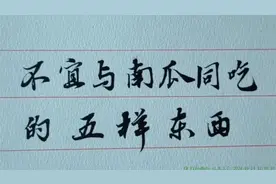 不宜与南瓜同吃
的五样东西